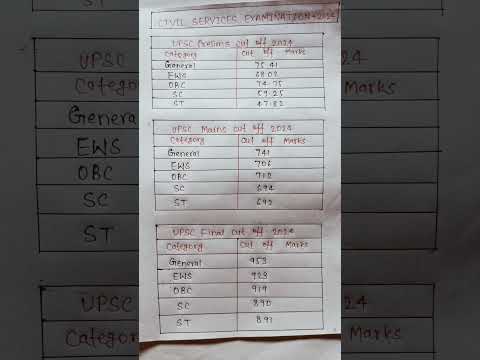 CIVIL SERVICES EXAMINATION-2024
UPSC Prelims cut off 2024
Category Cut off Marks
General 75.41
EWS 68.02
OBC 74.75
SC 59.25
ST 47.82
UPSC Mains cut off 2024
Category Cut off Marks
General 741
EWS 706
OBC 712
SC 694
ST 692
UPSC Final Cut off 2024
Category Cut off Marks
General 953
EWS 923
OBC 919
SC 890
ST 891